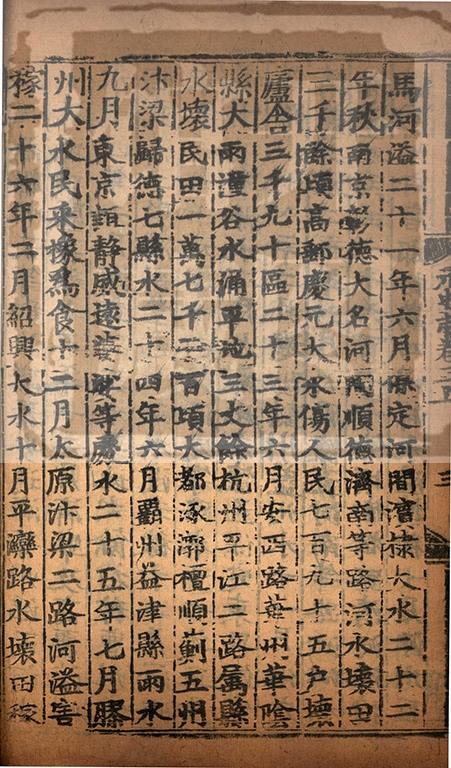 馬河溢二十一年六月保定河間濱棣大水二十二
年秋南京彰德大名河間順德濟南等路河水壞田
三千餘頃高郵慶元大水傷人民七百九十五戶壞
廬舍三千九十區二十三年六月安西路華州華陰
縣大雨潼谷水涌平地三丈餘杭州平江二路屬縣
水壞民田一萬七千二百頃大都涿漷檀順薊五州
汴梁歸德七縣水二十四年六月霸州益津縣雨水
九月東京誼靜威遠婆娑等處水二十五年七月膠
州大水民采橡爲食十二月太原汴梁二路河溢害
稼二十六年二月紹興大水十月平灤路水壞田稼